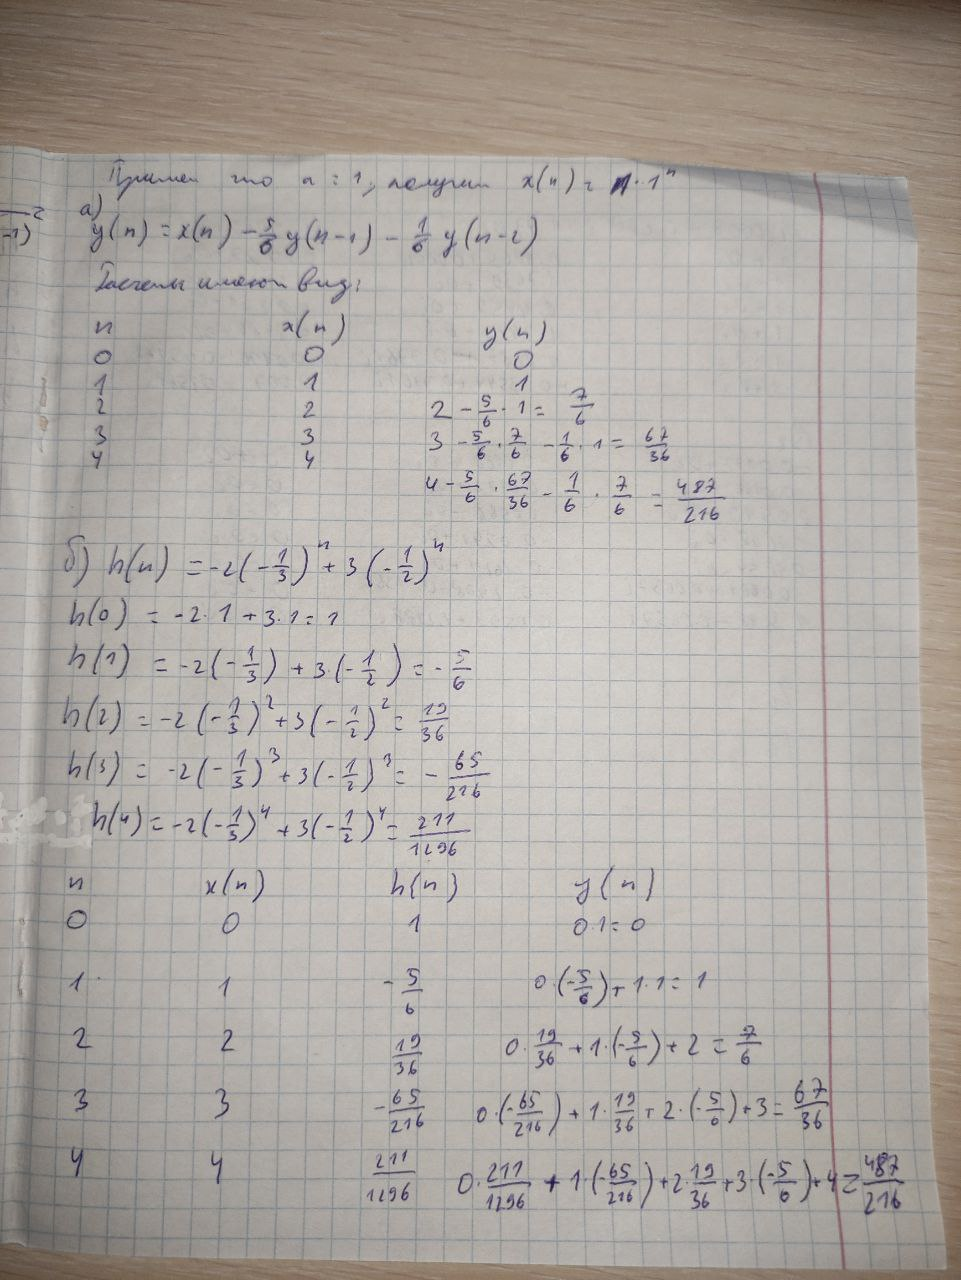 Примем что a = 1, получим x(n) = n·1ⁿ
а)
y(n) = x(n) - 5/6 y(n-1) - 1/6 y(n-2)
Расчеты имеют вид:
n x(n) y(n)
0 0 0
1 1 1
2 2 2 - 5/6 · 1 = 7/6
3 3 3 - 5/6 · 7/6 - 1/6 · 1 = 67/36
4 4 4 - 5/6 · 67/36 - 1/6 · 7/6 = 487/216
б) h(n) = -2(-1/3)ⁿ + 3(-1/2)ⁿ
h(0) = -2·1 + 3·1 = 1
h(1) = -2(-1/3) + 3·(-1/2) = -5/6
h(2) = -2(-1/3)² + 3(-1/2)² = 19/36
h(3) = -2(-1/3)³ + 3(-1/2)³ = -65/216
h(4) = -2(-1/3)⁴ + 3(-1/2)⁴ = 211/1296
n x(n) h(n) y(n)
0 0 1 0·1 = 0
1 1 -5/6 0·(-5/6) + 1·1 = 1
2 2 19/36 0·19/36 + 1·(-5/6) + 2 = 7/6
3 3 -65/216 0·(-65/216) + 1·19/36 + 2·(-5/6) + 3 = 67/36
4 4 211/1296 0·211/1296 + 1·(-65/216) + 2·19/36 + 3·(-5/6) + 4 = 487/216